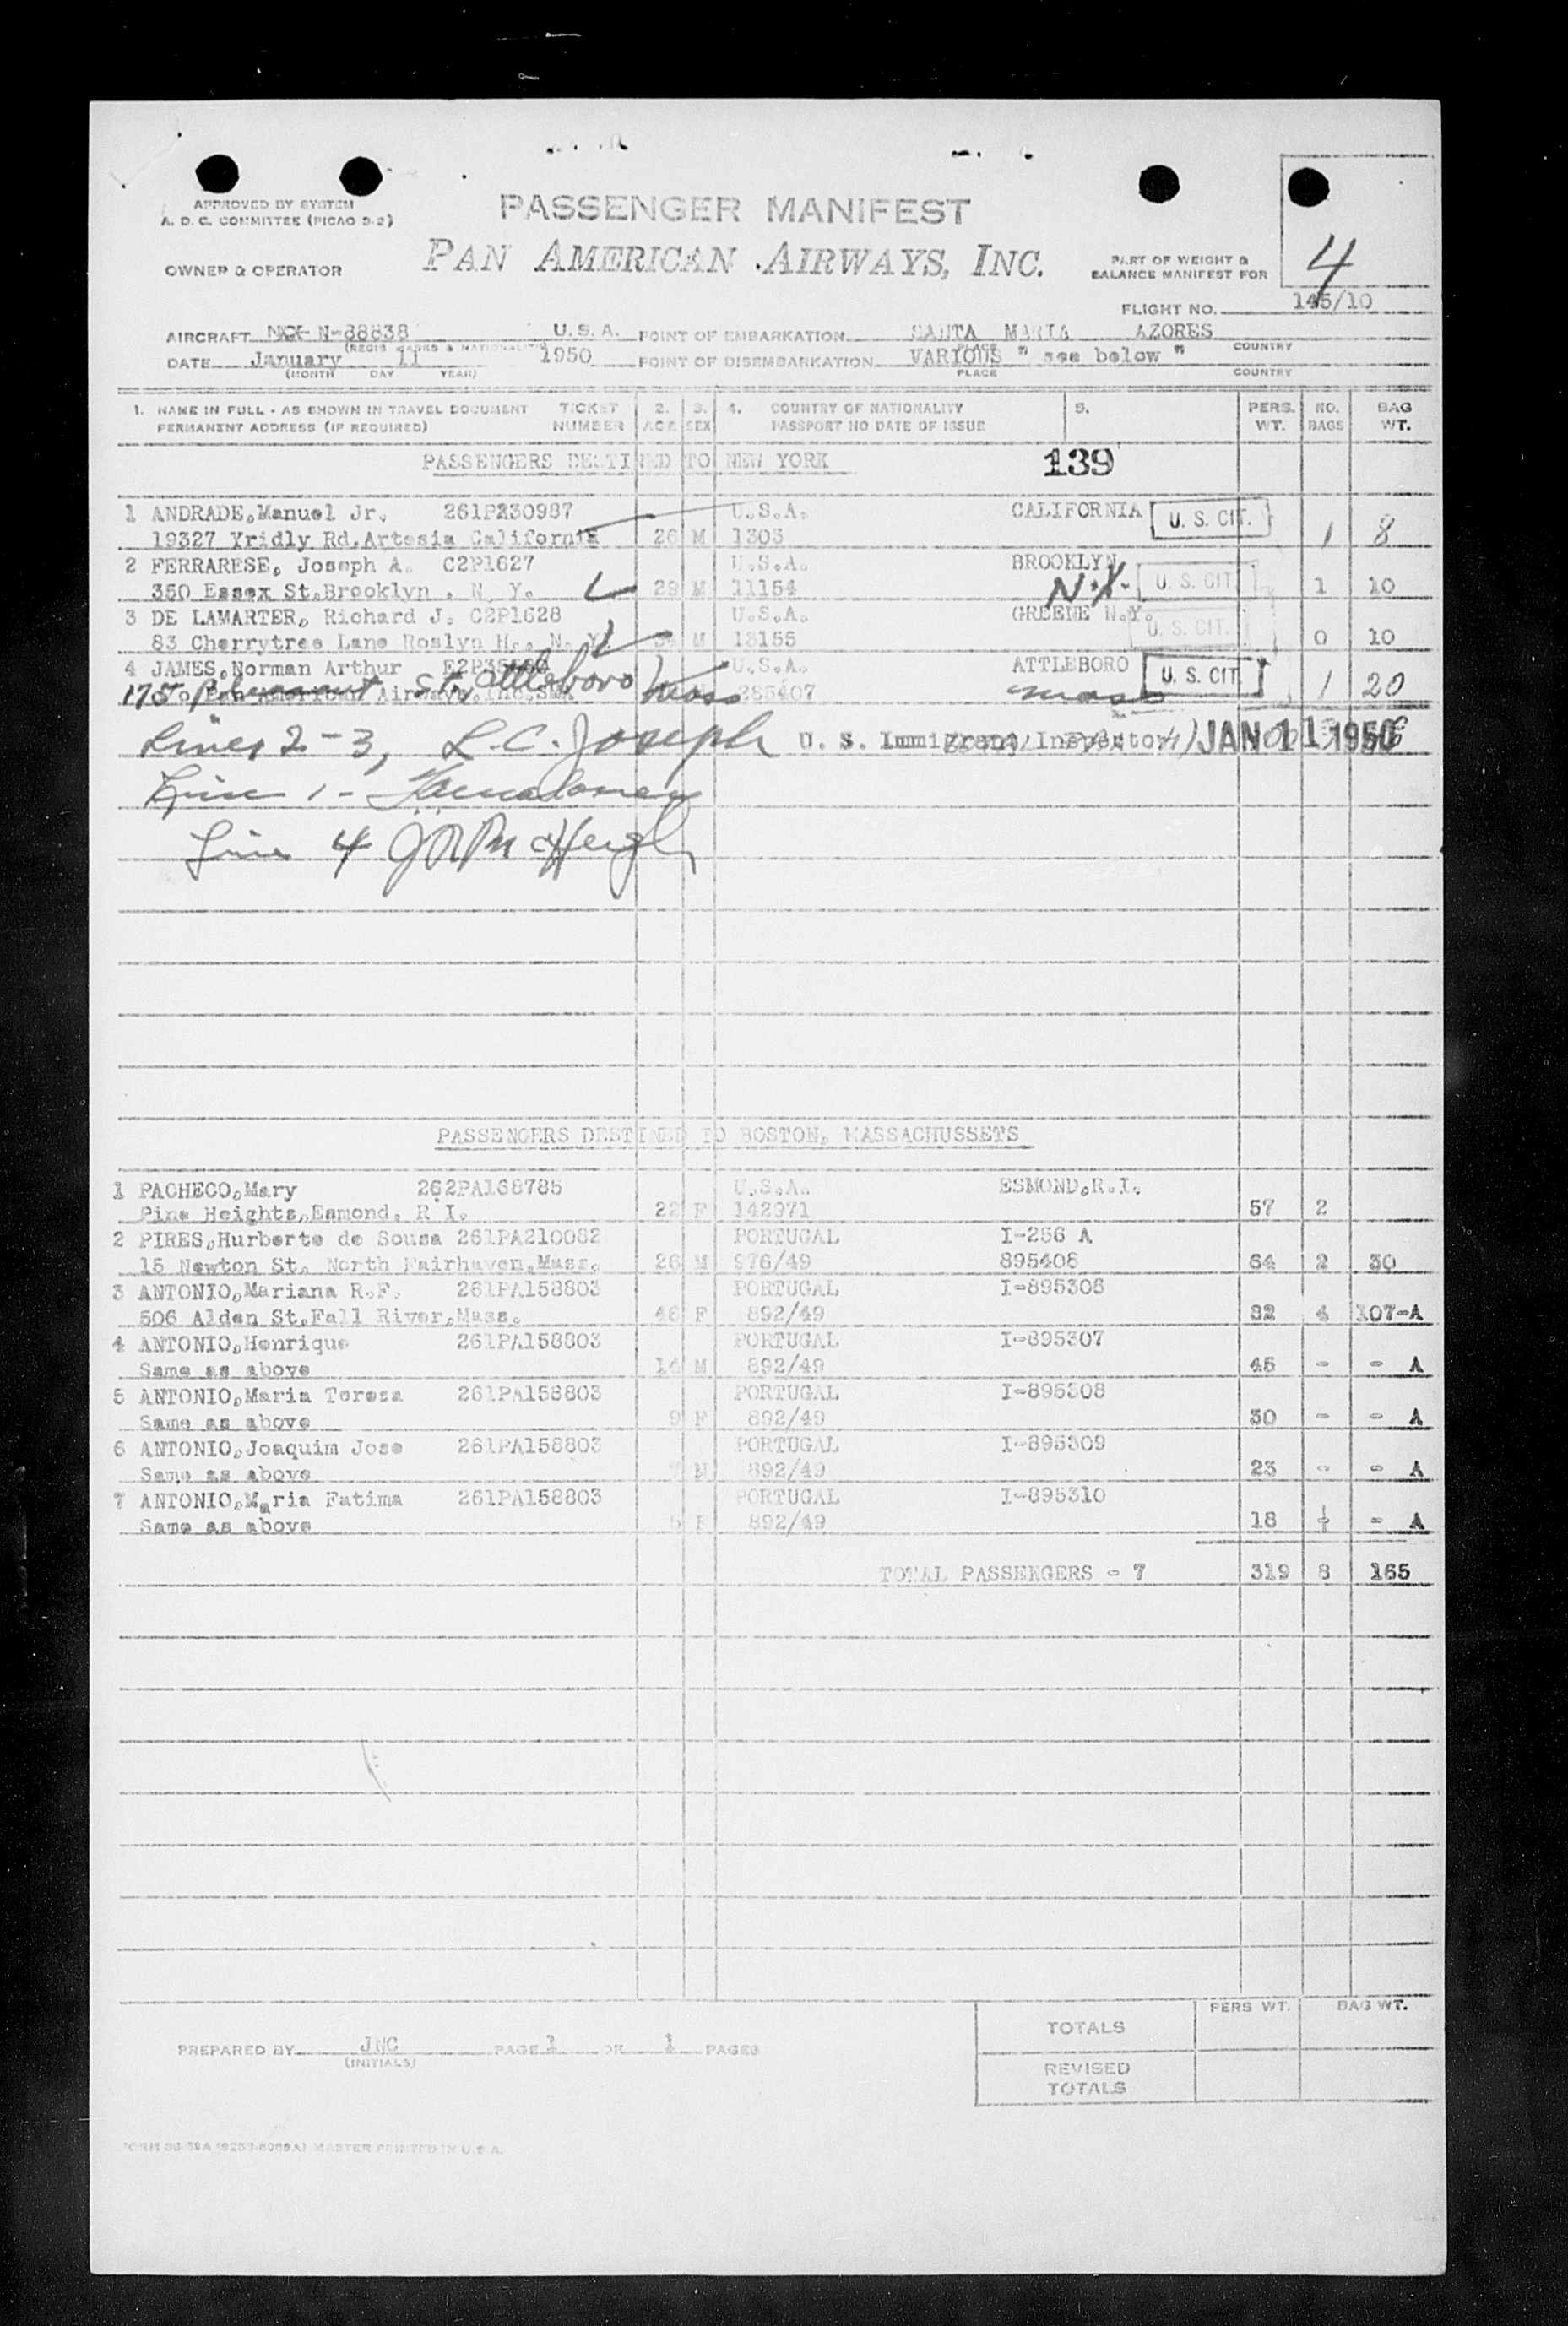 APPROVED BY SYSTEM
A. D. C. COMMITTEE (PICAO 9-2)
PASSENGER MANIFEST
PAN AMERICAN AIRWAYS, INC.
OWNER & OPERATOR
PART OF WEIGHT &
BALANCE MANIFEST FOR
4
FLIGHT NO. 145/10
AIRCRAFT N-88838 U. S. A. POINT OF EMBARKATION SANTA MARIA AZORES
(REGIS MARKS & NATIONALITY) PLACE COUNTRY
DATE January 11 1950 POINT OF DISEMBARKATION VARIOUS " see below "
(MONTH DAY YEAR) PLACE COUNTRY
1. NAME IN FULL - AS SHOWN IN TRAVEL DOCUMENT TICKET 2. 3. 4. COUNTRY OF NATIONALITY 5. PERS. NO. BAG
PERMANENT ADDRESS (IF REQUIRED) NUMBER AGE SEX PASSPORT NO DATE OF ISSUE WT. BAGS WT.
PASSENGERS DESTINED TO NEW YORK 139
1 ANDRADE,Manuel Jr. 261P230987 U.S.A. CALIFORNIA U. S. CIT.
19327 Yridly Rd.Artesia California 26 M 1303 1 8
2 FERRARESE, Joseph A. C2P1627 U.S.A. BROOKLYN
350 Essex St.Brooklyn . N. Y. 29 M 11154 N.Y. U. S. CIT. 1 10
3 DE LAMARTER, Richard J. C2P1628 U.S.A. GREENE N.Y.
83 Cherrytree Lane Roslyn H., N. Y. M 13155 U. S. CIT. 0 10
4 JAMES,Norman Arthur U.S.A. ATTLEBORO U. S. CIT.
175 St, Attleboro Mass 285407 mass 1 20
Lines 2-3, L.C. Joseph U. S. Immigrant Inspector JAN 11 1950
Line 1 -
Line 4
PASSENGERS DESTINED TO BOSTON, MASSACHUSSETS
1 PACHECO,Mary 262PA168785 U.S.A. ESMOND,R.I.
Pine Heights,Esmond. R I. 22 F 142971 57 2
2 PIRES,Hurberte de Sousa 261PA210082 PORTUGAL I-256 A
15 Newton St. North Fairhaven,Mass. 26 M 976/49 895408 64 2 30
3 ANTONIO,Mariana R.F. 261PA158803 PORTUGAL I-895306
506 Alden St.Fall River,Mass. 46 F 892/49 82 4 107-A
4 ANTONIO,Henrique 261PA158803 PORTUGAL I-895307
Same as above 14 M 892/49 45 - - A
5 ANTONIO,Maria Teresa 261PA158803 PORTUGAL I-895308
Same as above 9 F 892/49 30 - - A
6 ANTONIO,Joaquim Jose 261PA158803 PORTUGAL I-895309
Same as above 7 M 892/49 23 - - A
7 ANTONIO,Maria Fatima 261PA158803 PORTUGAL I-895310
Same as above 5 F 892/49 18 - - A
TOTAL PASSENGERS - 7 319 8 165
PERS WT. BAG WT.
TOTALS
PREPARED BY JNC PAGE 1 OF 1 PAGES
(INITIALS)
REVISED
TOTALS
MASTER PRINTED IN U. S. A.